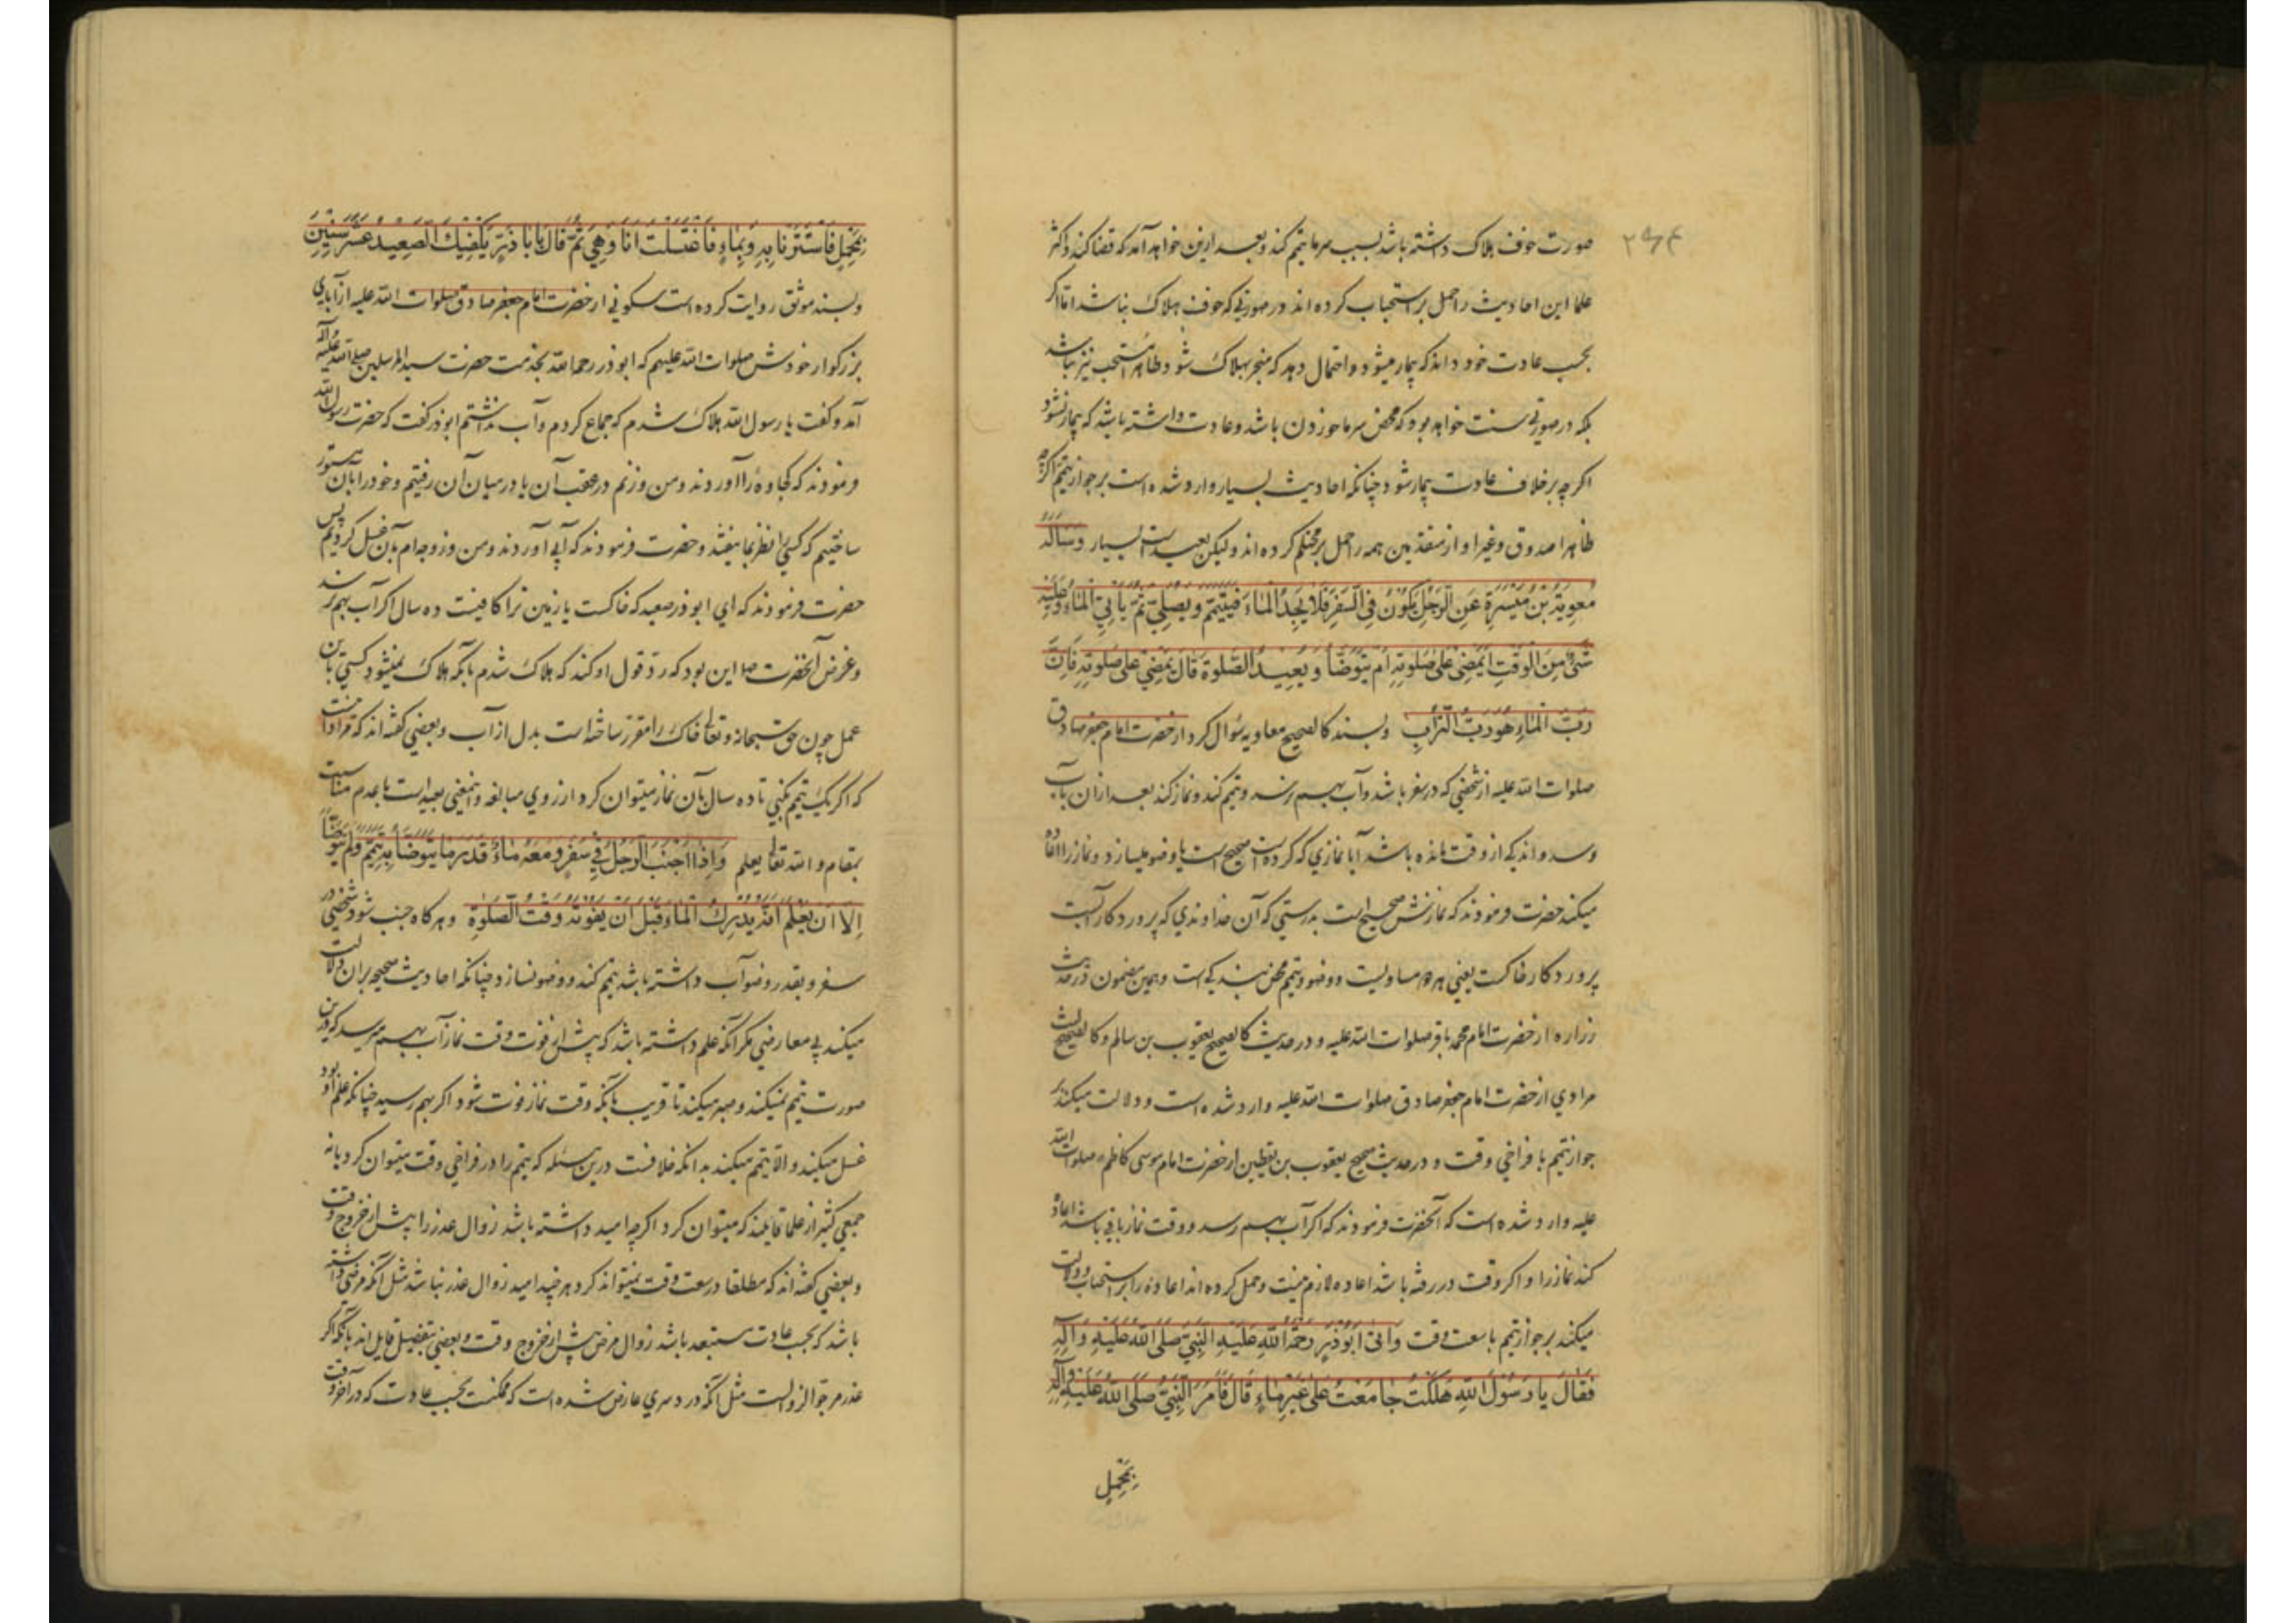 ۲۹۴
صورت خوف هلاک داشته باشد بسبب سرما تیمم کند و بعد ازین خواهد آمد که قضا کند و اکثر
علما این احادیث را حمل بر استحباب کرده اند در صورتی که خوف هلاک نباشد اما اگر
بحسب عادت خود داند که بیمار میشود و احتمال دهد که منجر بهلاک شود ظاهرا مستحب نیز نباشد
بلکه در صورتی سنت خواهد بود که محض سرما خوردن باشد و عادت داشته باشد که بیمار نشود
اگر چه بر خلاف عادت بیمار شود چنانکه احادیث بسیار وارد شده است بر جواز تیمم اگر چه
ظاهرا صدوق و غیر او از متقدمین همه را حمل بر محتلم کرده اند و لیکن بعید است بسیار وَسَاَلَهُ
مُعوِیَةُ بْنُ مَیْسَرَةَ عَنِ الرَّجُلِ یَکُونُ فِی السَّفَرِ فَلَا یَجِدُ الْمَاءَ فَیَتَیَمَّمُ وَ یُصَلِّی ثُمَّ یَأْتِی الْمَاءَ وَ عَلَیْهِ
شَیْءٌ مِنَ الْوَقْتِ اَیَمْضِی عَلی صَلوتِهِ اَمْ یَتَوَضَّأُ وَ یُعِیدُ الصَّلوةَ قَالَ یَمْضِی عَلی صَلوتِهِ فَاِنَّ
رَبَّ الْمَاءِ هُوَ رَبُّ التُّرَابِ و بسند کالصحیح معاویه سؤال کرد از حضرت امام جعفر صادق
صلوات الله علیه از شخصی که در سفر باشد و آب بهم نرسد و تیمم کند و نماز کند بعد از ان بآب
رسد و اندکی از وقت مانده باشد آیا نمازی که کرده است صحیح است یا وضو میسازد و نماز را اعاده
میکند حضرت فرمودند که نمازش صحیح است بدرستی که آن خداوندی که پروردگار آبست
پروردگار خاکست یعنی هر دو مساویست و وضو و تیمم محض بندگی است و همین مضمون در حدیث
زراره از حضرت امام محمد باقر صلوات الله علیه و در حدیث کالصحیح یعقوب بن سالم و کالصحیح لیث
مرادی از حضرت امام جعفر صادق صلوات الله علیه وارد شده است و دلالت میکند بر
جواز تیمم با فراخی وقت و در حدیث صحیح یعقوب بن یقطین از حضرت امام موسی کاظم صلوات الله
علیه وارد شده است که آنحضرت فرمودند که اگر آب بهم رسد و وقت نماز باقی باشد اعاده
کند نماز را و اگر وقت در رفته باشد اعاده لازم نیست و حمل کرده اند اعاده را بر استحباب و دلالت
میکند بر جواز تیمم با سعت وقت وَ اَتی اَبُوذَرٍّ رَحْمَةُ اللهِ عَلَیْهِ النَّبِیَّ صَلَّی اللهُ عَلَیْهِ وَ آلِهِ
فَقَالَ یا رَسُولَ اللهِ هَلَکْتُ جَامَعْتُ عَلی غَیْرِ مَاءٍ قَالَ فَاَمَرَ النَّبِیُّ صَلَّی اللهُ عَلَیْهِ وَ آلِهِ
بِمَحْمِلٍ
بِمَحْمِلٍ فَاسْتَتَرْنَا بِهِ وَ بِمَاءٍ فَاغْتَسَلْتُ اَنَا وَ هِیَ ثُمَّ قَالَ یا اَبَا ذَرٍّ یَکْفِیکَ الصَّعِیدُ عَشْرَ سِنِینَ
و بسند موثق روایت کرده است سکونی از حضرت امام جعفر صادق صلوات الله علیه از آبای
بزرگوار خودش صلوات الله علیهم که ابوذر رحمه الله بخدمت حضرت سید المرسلین صلی الله علیه و آله
آمد و گفت یا رسول الله هلاک شدم که جماع کردم و آب نداشتم ابوذر گفت که حضرت رسول الله
فرمودند که کجاوه را آوردند و من و زنم در عقب آن یا در میان آن رفتیم و خود را بآن مستور
ساختیم که کسی را نظر بما نیفتد و حضرت فرمودند که آبی آوردند و من و زوجه ام بآن غسل کردیم پس
حضرت فرمودند که ای ابوذر صعید که خاکست یا زمین ترا کافیست ده سال اگر آب بهم نرسد
و غرض آنحضرت ص این بود که رد قول او کند که هلاک شدم بآنکه هلاک نمیشود کسی باین
عمل چون حق سبحانه و تعالی خاک را مقرر ساخته است بدل از آب و بعضی گفته اند که مراد آنست
که اگر یک تیمم بکنی تا ده سال بآن نماز میتوان کرد از روی مبالغه و اینمعنی بعید است با عدم مناسبت
بمقام و الله تعالی یعلم وَ اِذَا اَجْنَبَ الرَّجُلُ فِی سَفَرٍ وَ مَعَهُ مَاءٌ قَدْرَ مَا یَتَوَضَّأُ بِهِ تَیَمَّمَ وَ لَمْ یَتَوَضَّأْ
اِلَّا اَنْ یَعْلَمَ اَنَّهُ یُدْرِکُ الْمَاءَ قَبْلَ اَنْ یَفُوتَهُ وَقْتُ الصَّلوةِ و هر گاه جنب شود شخصی در
سفر و بقدر وضو آب داشته باشد تیمم کند و وضو نسازد چنانکه احادیث صحیحه بران دلالت
میکند بی معارضی مگر آنکه علم داشته باشد که پیش از فوت وقت نماز آب بهم میرسد که درین
صورت تیمم نمیکند و صبر میکند تا قریب بآنکه وقت نماز فوت شود اگر بهم رسید چنانکه علم او بود
غسل میکند و الا تیمم میکند بدانکه خلافست درین مسئله که تیمم را در فراخی وقت میتوان کرد یا نه
جمعی کثیر از علما قایلند که میتوان کرد اگر چه امید داشته باشد زوال عذر را پیش از خروج وقت
و بعضی گفته اند که مطلقا در سعت وقت نمیتواند کرد هر چند امید زوال عذر نباشد مثل آنکه مرضی داشته
باشد که بحسب عادت مستبعد باشد زوال مرض پیش از خروج وقت و بعضی بتفصیل قایل اند بآنکه اگر
عذر مرجو الزوالست مثل آنکه درد سری عارض شده است که ممکنست بحسب عادت که در آخر وقت